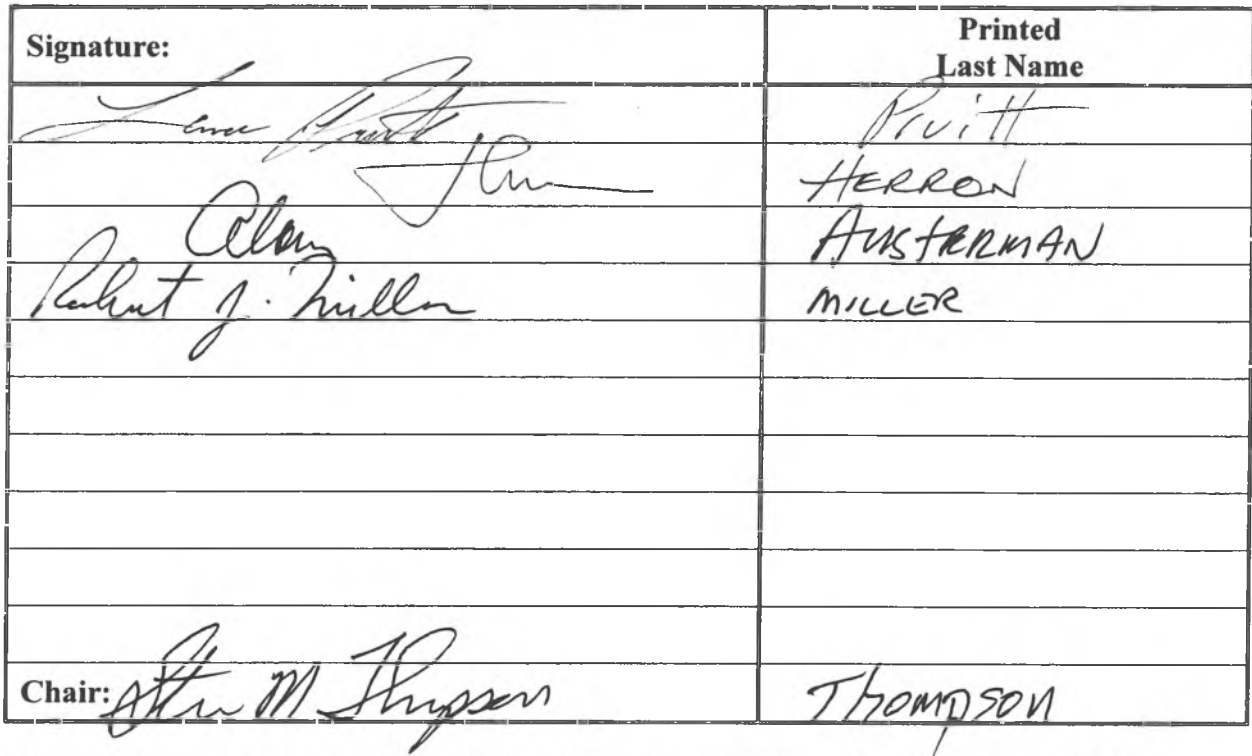 Signature: Printed
Last Name
Pruitt
HERRON
Alan AUSTERMAN
Robert J. Miller MILLER
Chair: Steve M Thompson Thompson